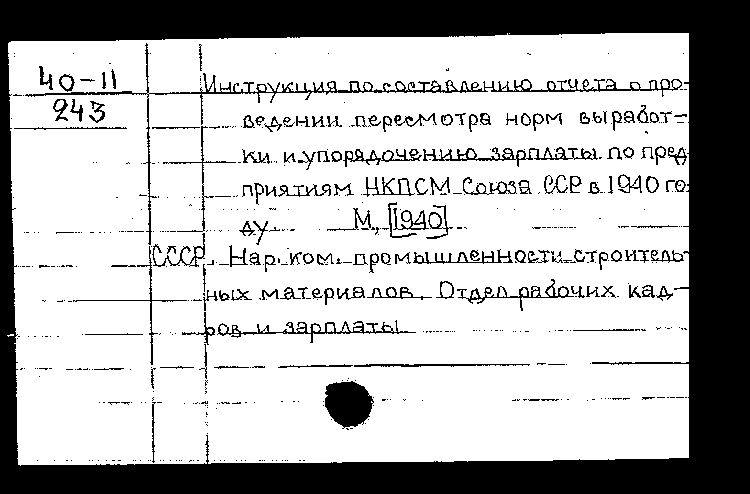 40-11
243
Инструкция по составлению отчета о про-
ведении пересмотра норм выработ-
ки и упорядочению зарплаты по пред-
приятиям НКПСМ Союза ССР в 1940 го-
ду. М., [1940]
СССР. Нар. ком. промышленности строитель-
ных материалов. Отдел рабочих кад-
ров и зарплаты